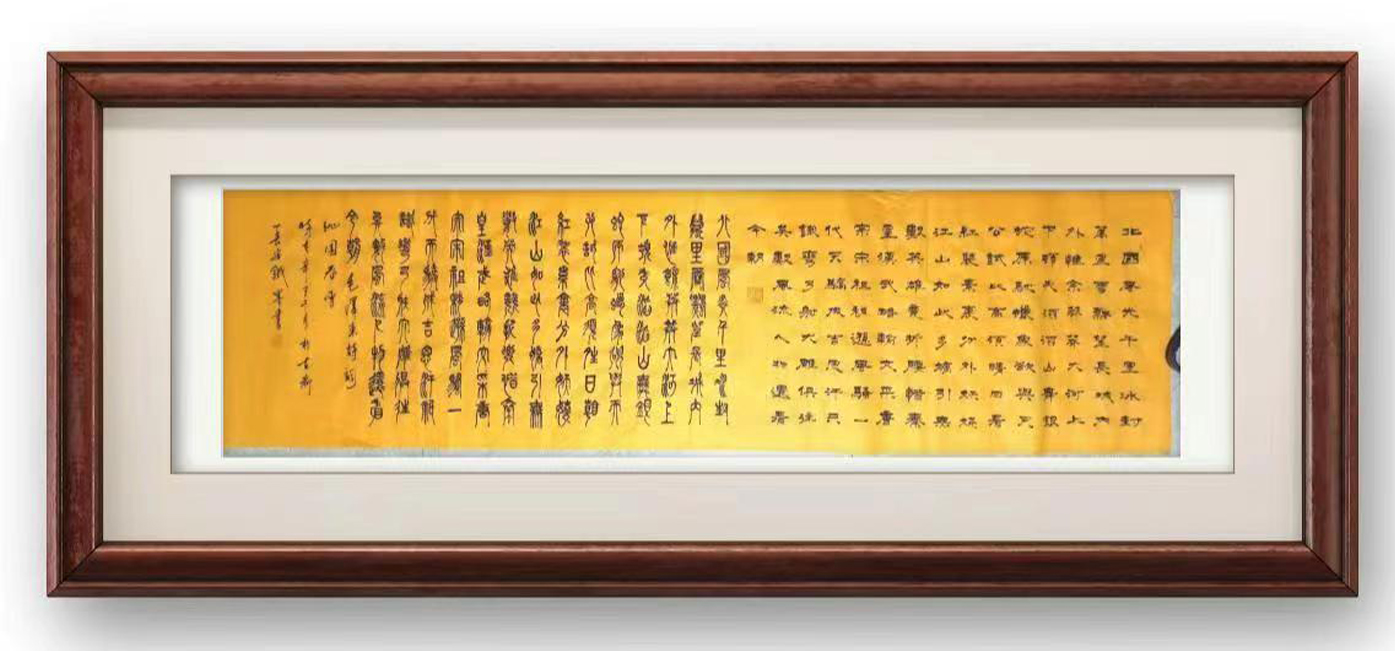 北國風光千里冰封
萬里雪飄望長城內
外惟余莽莽大河上
下頓失滔滔山舞銀
蛇原馳蠟象欲與天
公試比高須晴日看
紅裝素裹分外妖嬈
江山如此多嬌引無
數英雄競折腰惜秦
皇漢武略輸文采唐
宗宋祖稍遜風騷一
代天驕成吉思汗只
識彎弓射大雕俱往
矣數風流人物還看
今朝
北國風光千里冰封
萬里雪飄望長城內
外惟余莽莽大河上
下頓失滔滔山舞銀
蛇原馳蠟象欲與天
公試比高須晴日看
紅裝素裹分外妖嬈
江山如此多嬌引無
數英雄競折腰惜秦
皇漢武略輸文采唐
宗宋祖稍遜風騷一
代天驕成吉思汗只
識彎弓射大雕俱往
矣數風流人物還看
今朝 毛澤東詩詞
沁園春雪